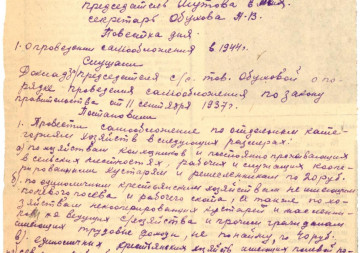 председатель Шутова в н.х.
секретарь Обухова Н.В.
Повестка дня.
1. О проведении самообложения в 1944 г.
Слушали
Доклад председателя с/с тов. Обуховой о по-
рядке проведения самообложения по закону
правительства от 11 сентября 1937 г.
Постановили
1. Провести самообложение по отдельным кате-
гориям хозяйств в следующих размерах:
а) по хозяйствам колхозников и постоянно проживающих
в сельских местностях, рабочих и служащих коопе-
рированных кустарей и ремесленников по 20 руб.
б) по единоличным крестьянским хозяйствам не имеющим
посева и рабочего скота, а также по хо-
зяйствам некооперированных кустарей и
и прочим гражданам
имеющим трудовые доходы, не по найму, по 40 руб.
в) единоличных крестьянских хозяйств имеющих полевой по-